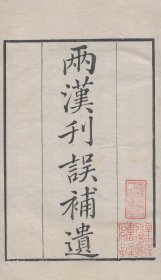 兩漢刊誤補遺